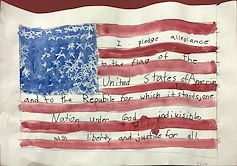 I pledge allegiance
to the flag of the
United States of America
and to the Republic for which it stands, one
Nation under God, indivisible,
with liberty and justice for all.